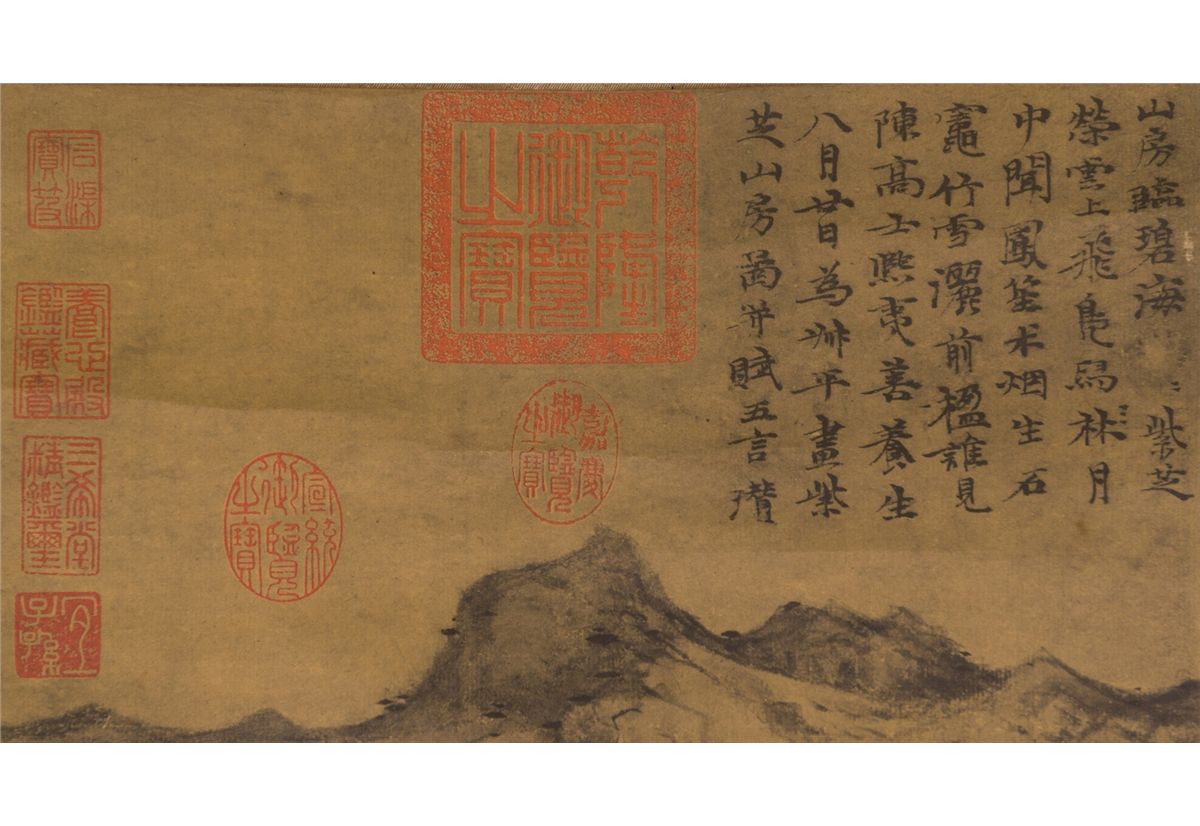 山房臨碧海紫芝
榮雲上飛鳧舄林月
中聞鳳笙朮烟生石
竈竹雪灑前楹誰見
陳高士熈夷善養生
八月廿日為叔平畫紫
芝山房啚并賦五言瓚
乾隆
御覽
之寶
嘉慶
御覽
之寶
宣統
御覽
之寶
石渠
寶笈
養心殿
鑑藏寶
三希堂
精鑑璽
宜
子孫